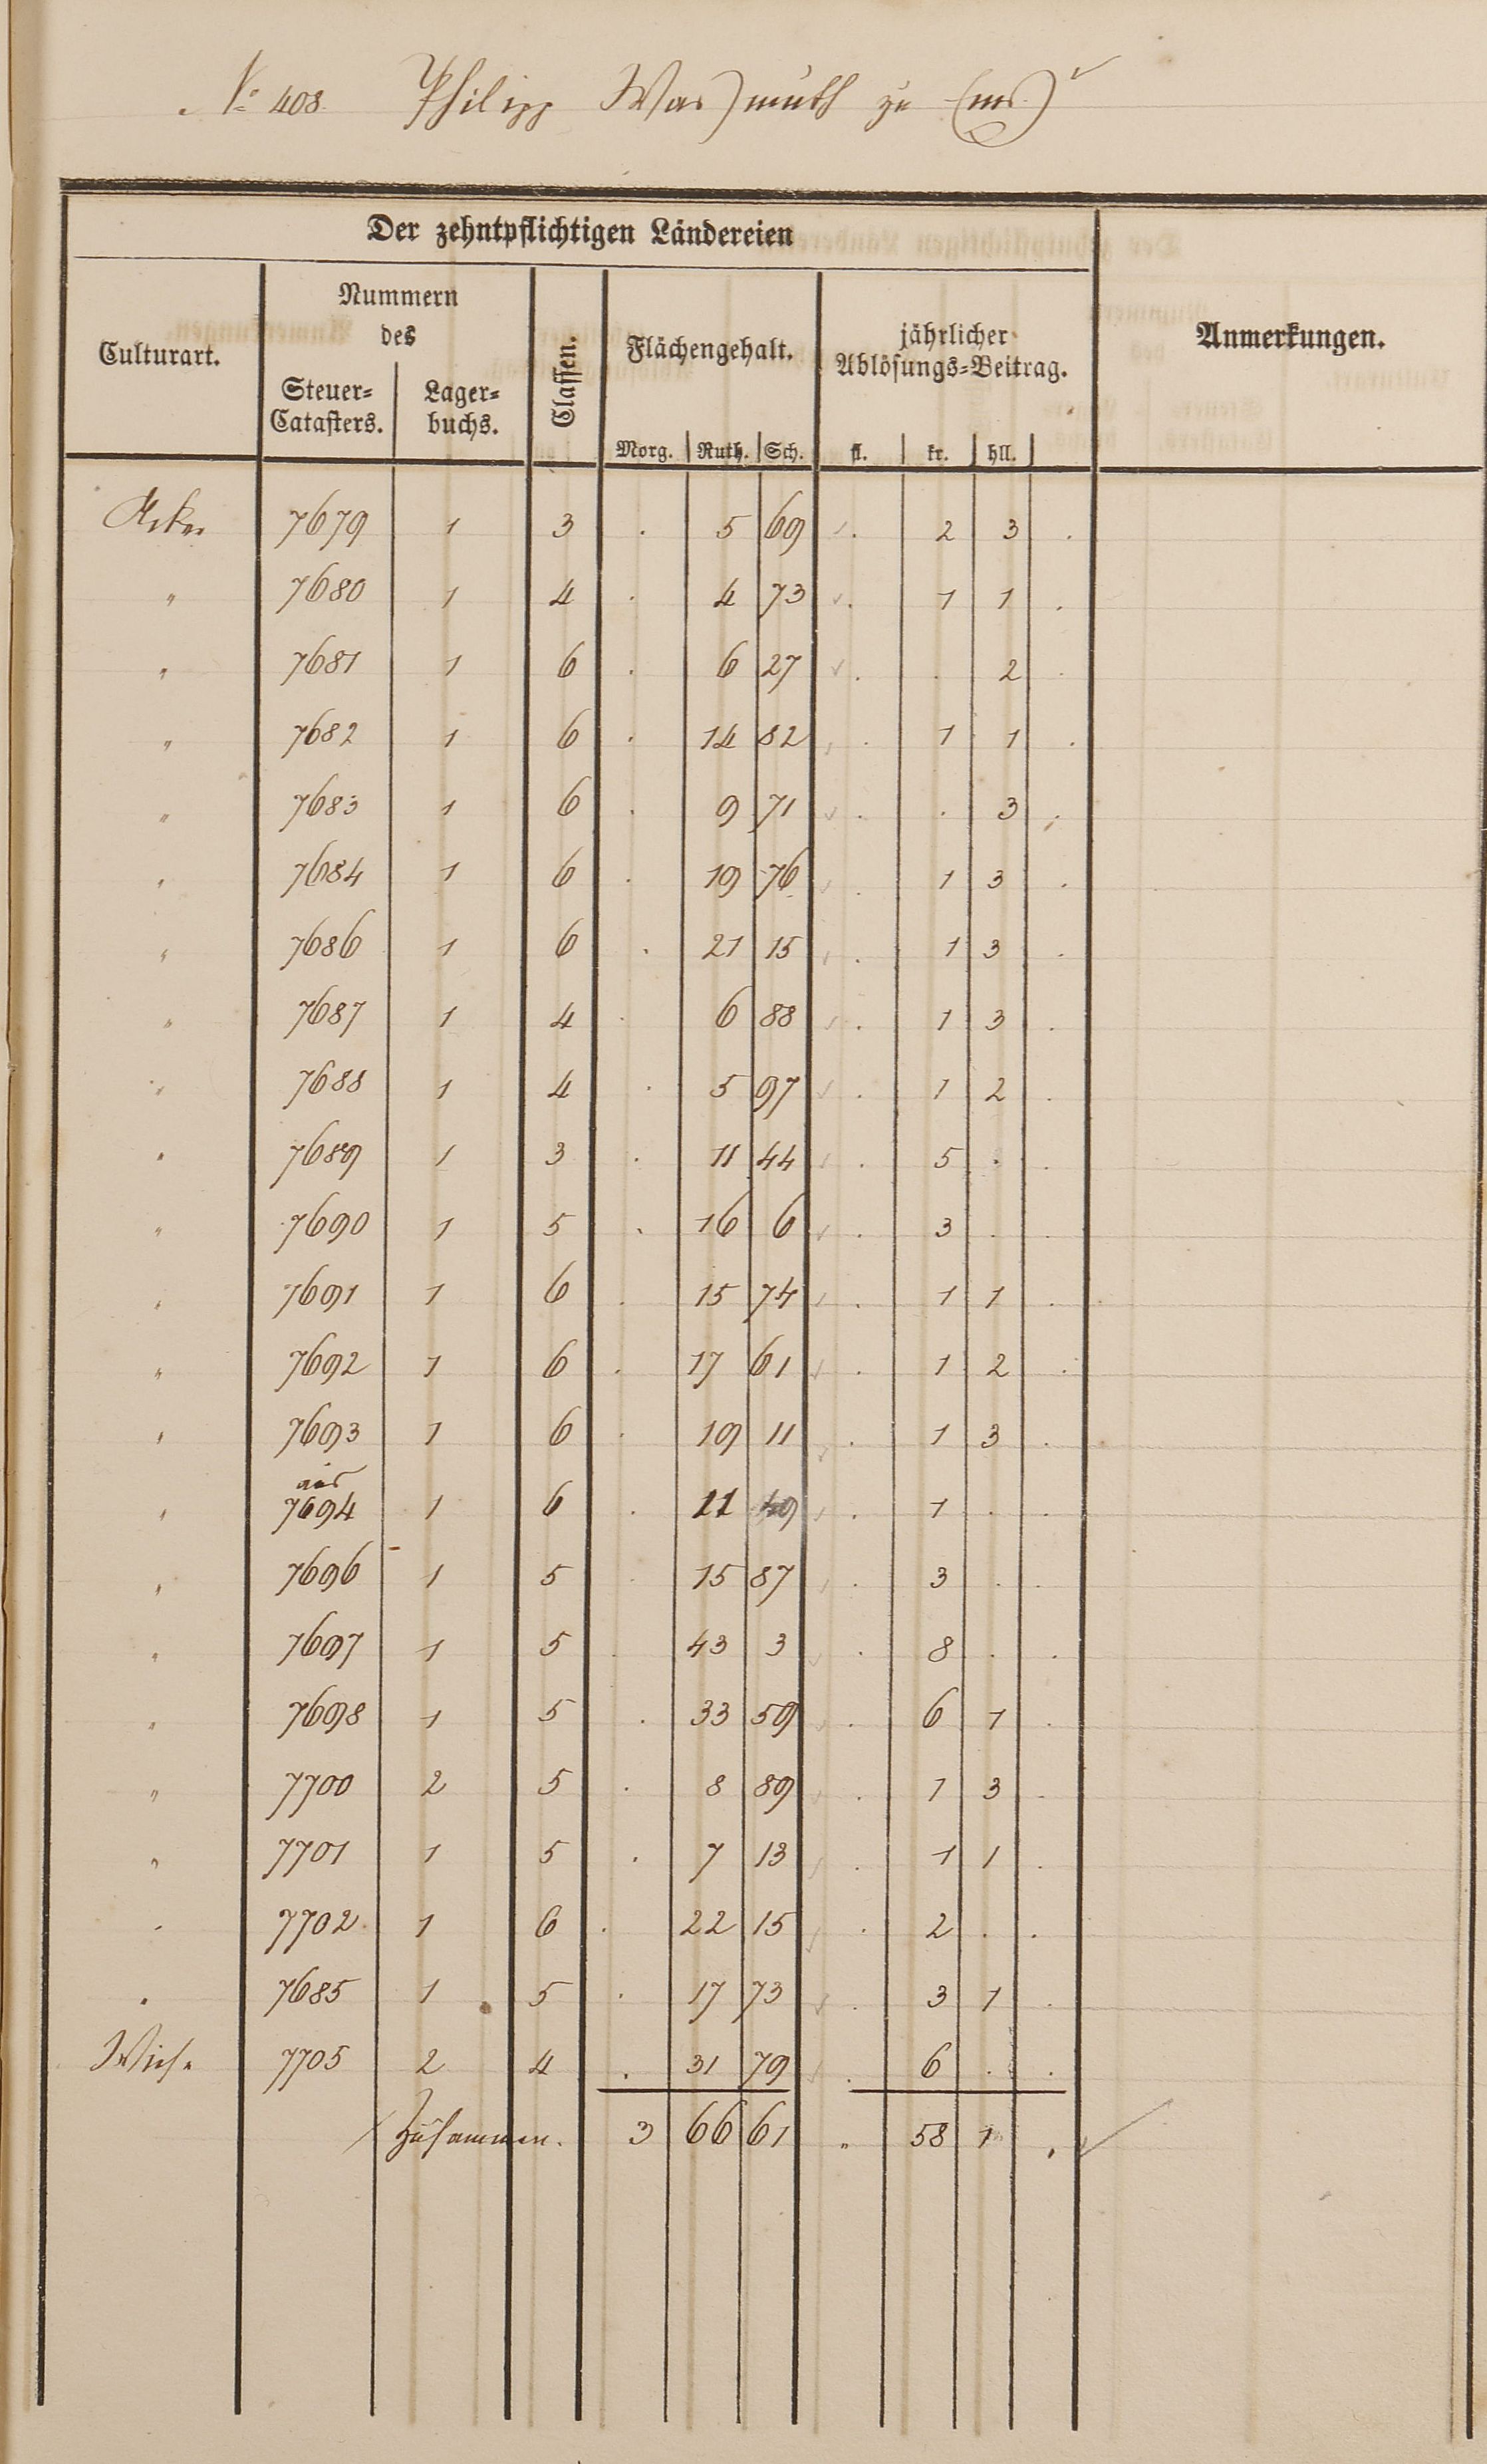 № 408. Philipp Wasmuth zu Ems
Der zehntpflichtigen Ländereien
Culturart. Nummern des Steuer=Catasters. Lager=buchs. Classen. Flächengehalt. Morg. Ruth. Sch. jährlicher Ablösungs=Beitrag. fl. kr. hll. Anmerkungen.
Acker 7679 1 3 . 5 69 . 2 3 .
" 7680 1 4 . 4 73 . 1 1 .
" 7681 1 6 . 6 27 . . 2 .
" 7682 1 6 . 14 82 . 1 1 .
" 7683 1 6 . 9 71 . . 3 .
" 7684 1 6 . 19 76 . 1 3 .
" 7686 1 6 . 21 15 . 1 3 .
" 7687 1 4 . 6 88 . 1 3 .
" 7688 1 4 . 5 97 . 1 2 .
" 7689 1 3 . 11 44 . 5 . .
" 7690 1 5 . 16 6 . 3 . .
" 7691 1 6 . 15 74 . 1 1 .
" 7692 1 6 . 17 61 . 1 2 .
" 7693 1 6 . 19 11 . 1 3 .
aus
" 7694 1 6 . 11 49 . 1 . .
" 7696 1 5 . 15 87 . 3 . .
" 7697 1 5 . 43 3 . 8 . .
" 7698 1 5 . 33 59 . 6 1 .
" 7700 2 5 . 8 89 . 1 3 .
" 7701 1 5 . 7 13 . 1 1 .
" 7702 1 6 . 22 15 . 2 . .
" 7685 1 5 . 17 73 . 3 1 .
Wiese 7705 2 4 . 31 79 . 6 . .
Zusammen. 3 66 61 " 58 1 .